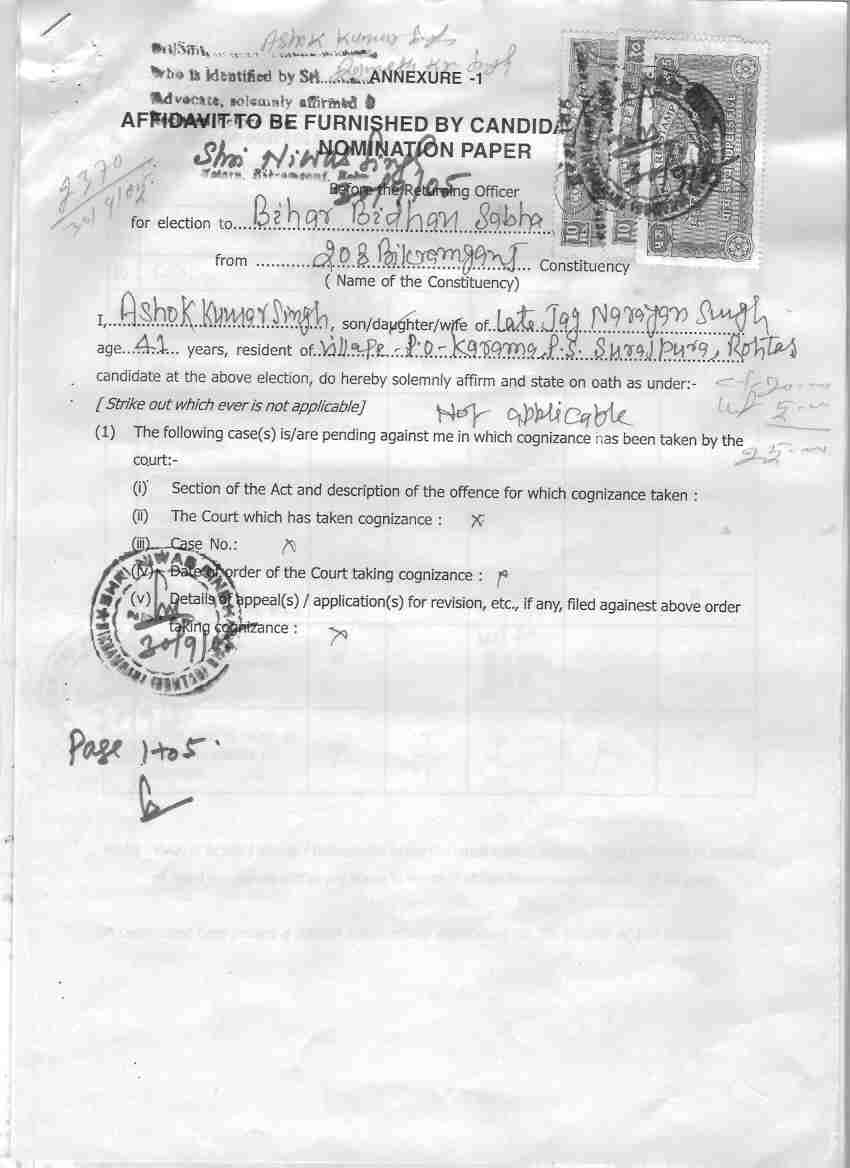 Ashok Kumar Singh
who is identified by Sri.........ANNEXURE -1
Advocate, solemnly affirmed
AFFIDAVIT TO BE FURNISHED BY CANDIDA
NOMINATION PAPER
Shri Niwas Singh
Before the Returning Officer
2370
30/9/05
for election to Bihar Bidhan Sabha
from 208 Bikramganj Constituency
( Name of the Constituency)
I, Ashok Kumar Singh, son/daughter/wife of Late Jag Narayan Singh
age 41 years, resident of Village - P.O - Karama, P.S. Surajpura, Rohtas
candidate at the above election, do hereby solemnly affirm and state on oath as under:-
[ Strike out which ever is not applicable]
Not applicable
(1) The following case(s) is/are pending against me in which cognizance has been taken by the
court:-
(i) Section of the Act and description of the offence for which cognizance taken :
(ii) The Court which has taken cognizance : x
(iii) Case No.: x
(iv) Date of order of the Court taking cognizance :
(v) Details of appeal(s) / application(s) for revision, etc., if any, filed againest above order
taking cognizance : x
SHRI NIWAS SINGH
30/9/
Page 1 to 5.